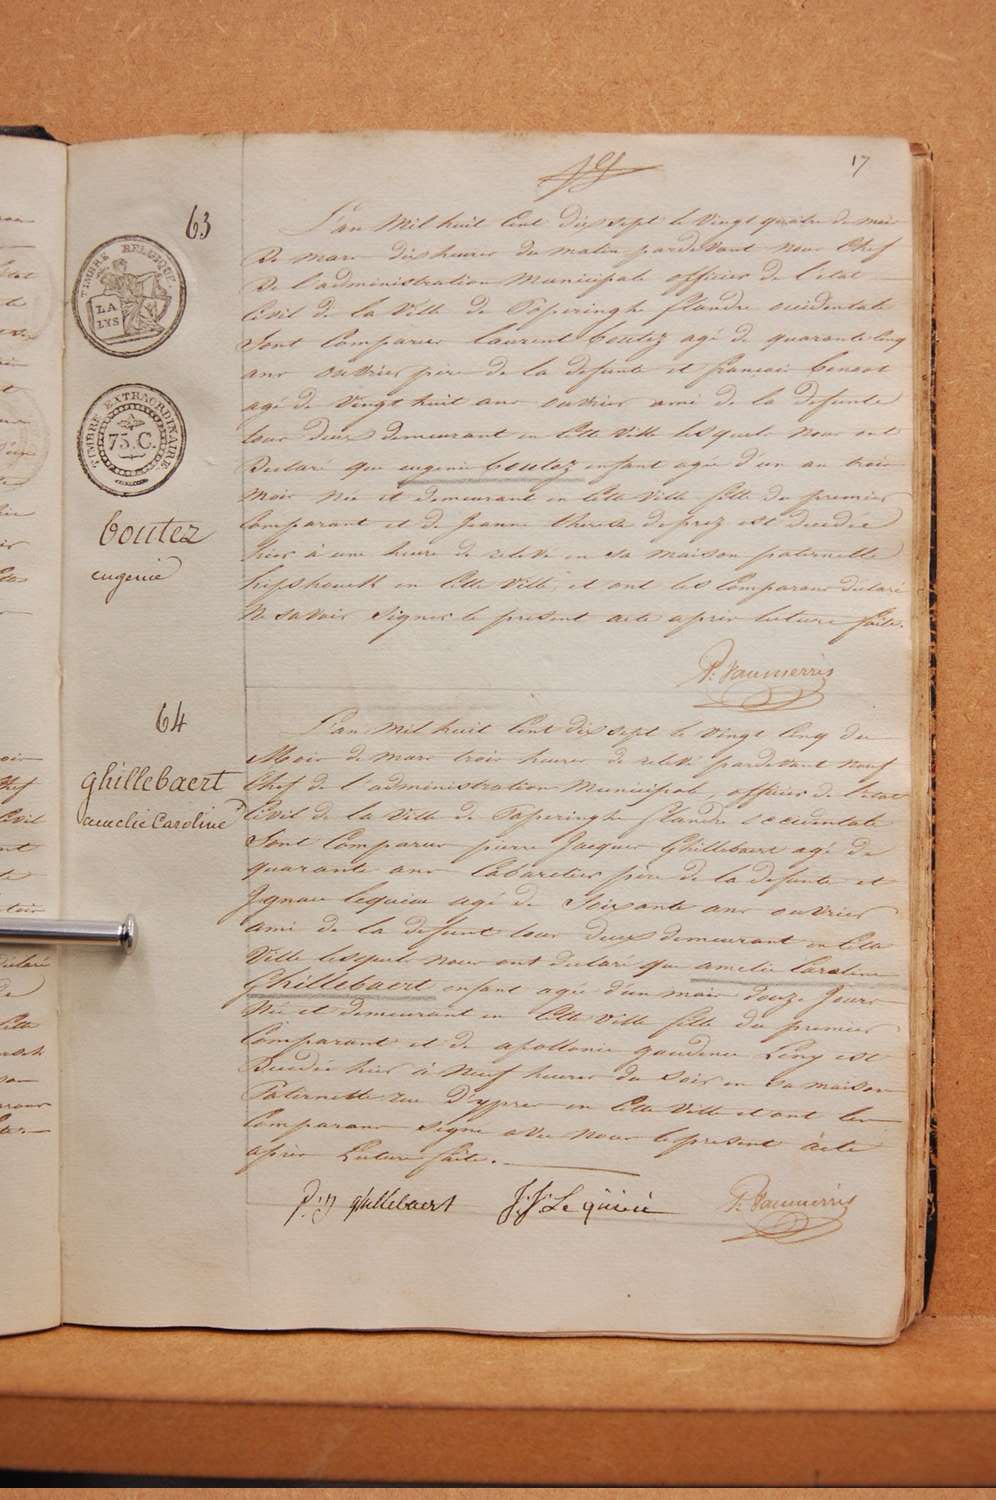 17
63
TIMBRE BELGIQUE
LA
LYS
TIMBRE EXTRAORDINAIRE
75.C.
boutez
eugenie
L'an Mil huit Cent dix sept le vingt quatre du mois
De mars dix heures du matin pardevant nous Chef
De l'administration Municipale officier de l'etat
Civil de la Ville de Poperinghe flandre occidentale
Sont Comparus laurent boutez agé de quarante cinq
ans ouvrier père de la defunte et françois
agé de Vingt huit ans ouvrier ami de la defunte
tous deux demeurant en Cette Ville lesquels nous ont
Declaré que eugenie boutez enfant agée d'un an trois
Mois Née et demeurant en Cette Ville fille du premier
Comparant et de Jeanne therese deprez est decedée
hier à une heure de relevé en sa maison paternelle
en Cette Ville, et ont les Comparans declaré
Ne savoir signer le present acte après lecture faite.
P. Vanmerris
64
ghillebaert
amelie Caroline
L'an Mil huit Cent dix sept le vingt Cinq du
Mois de mars trois heures de relevé pardevant nous
Chef de l'administration Municipale, officier de l'etat
Civil de la Ville de Poperinghe flandre occidentale
Sont Comparus pierre Jacques Ghillebaert agé de
quarante ans Cabaretier père de la defunte et
Ignace lequieu agé de Soixante ans ouvrier
ami de la defunte tous deux demeurant en Cette
Ville lesquels nous ont declaré que amelie Caroline
Ghillebaert enfant agée d'un mois douze Jours
Née et demeurant en Cette Ville fille du premier
Comparant et de apollonie est
Decedée hier à Neuf heures du soir en sa maison
Paternelle rue d'ypres en Cette Ville et ont les
Comparans signé avec nous le present acte
après Lecture faite.
P: J ghillebaert J: J: Le P. Vanmerris